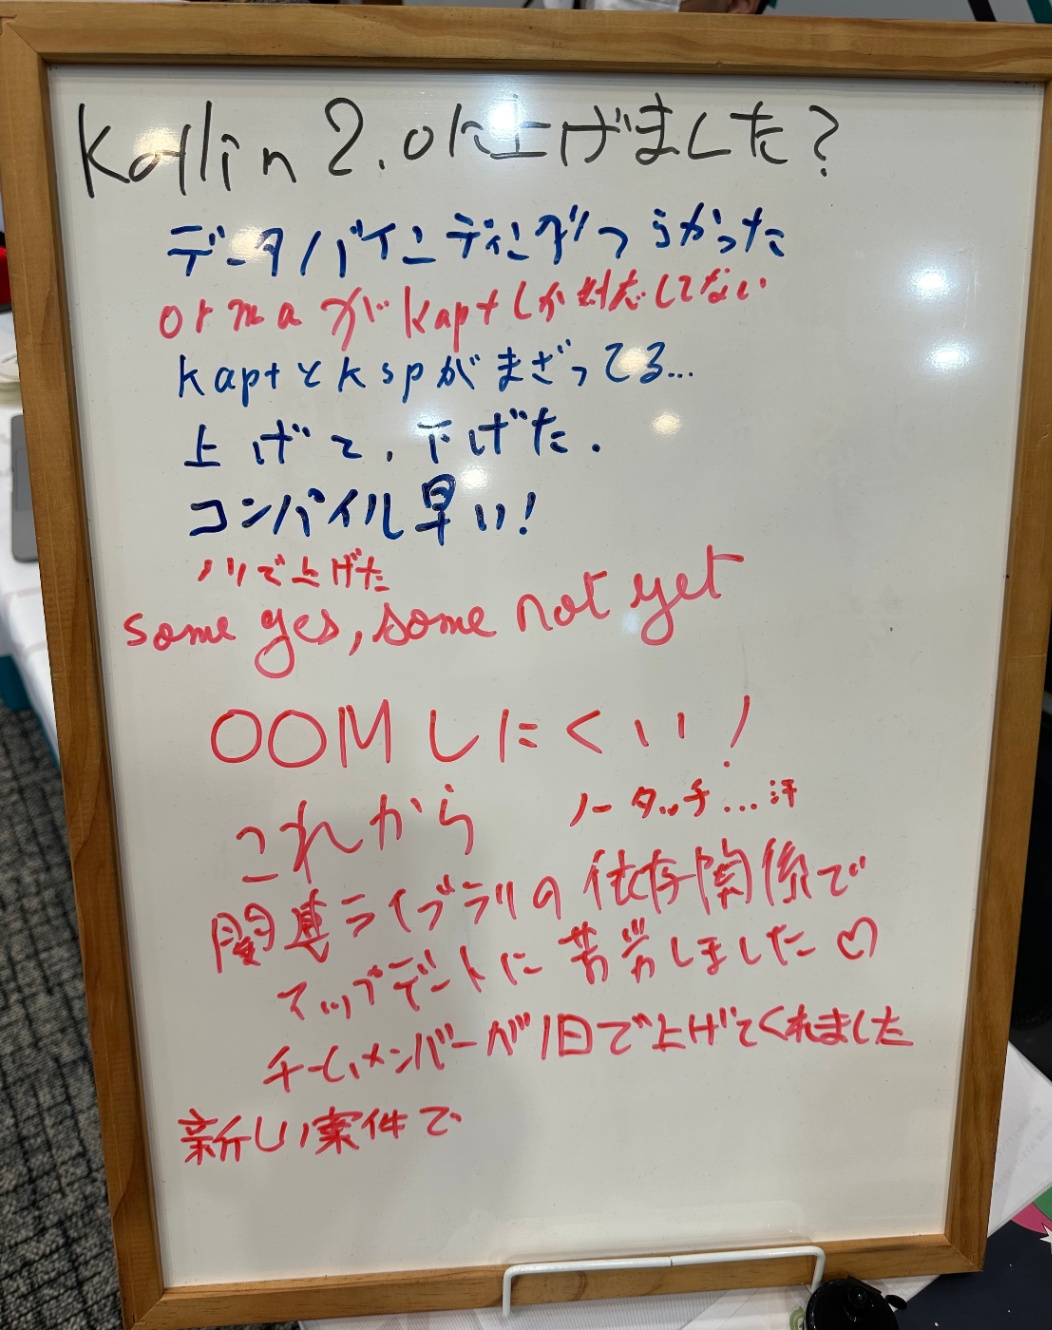 Kotlin 2.0に上げましたか?
データバインディングつらかった
ormaがkaptしか対応してない
kaptとkspがまざってる...
上げて、下げた.
コンパイル早い!
ノリで上げた
some yes, some not yet
OOMしにくい!
これから
ノータッチ...汗
関連ライブラリの依存関係で
アップデートに苦労しました♡
チームメンバーが1日で上げてくれました
新しい案件で